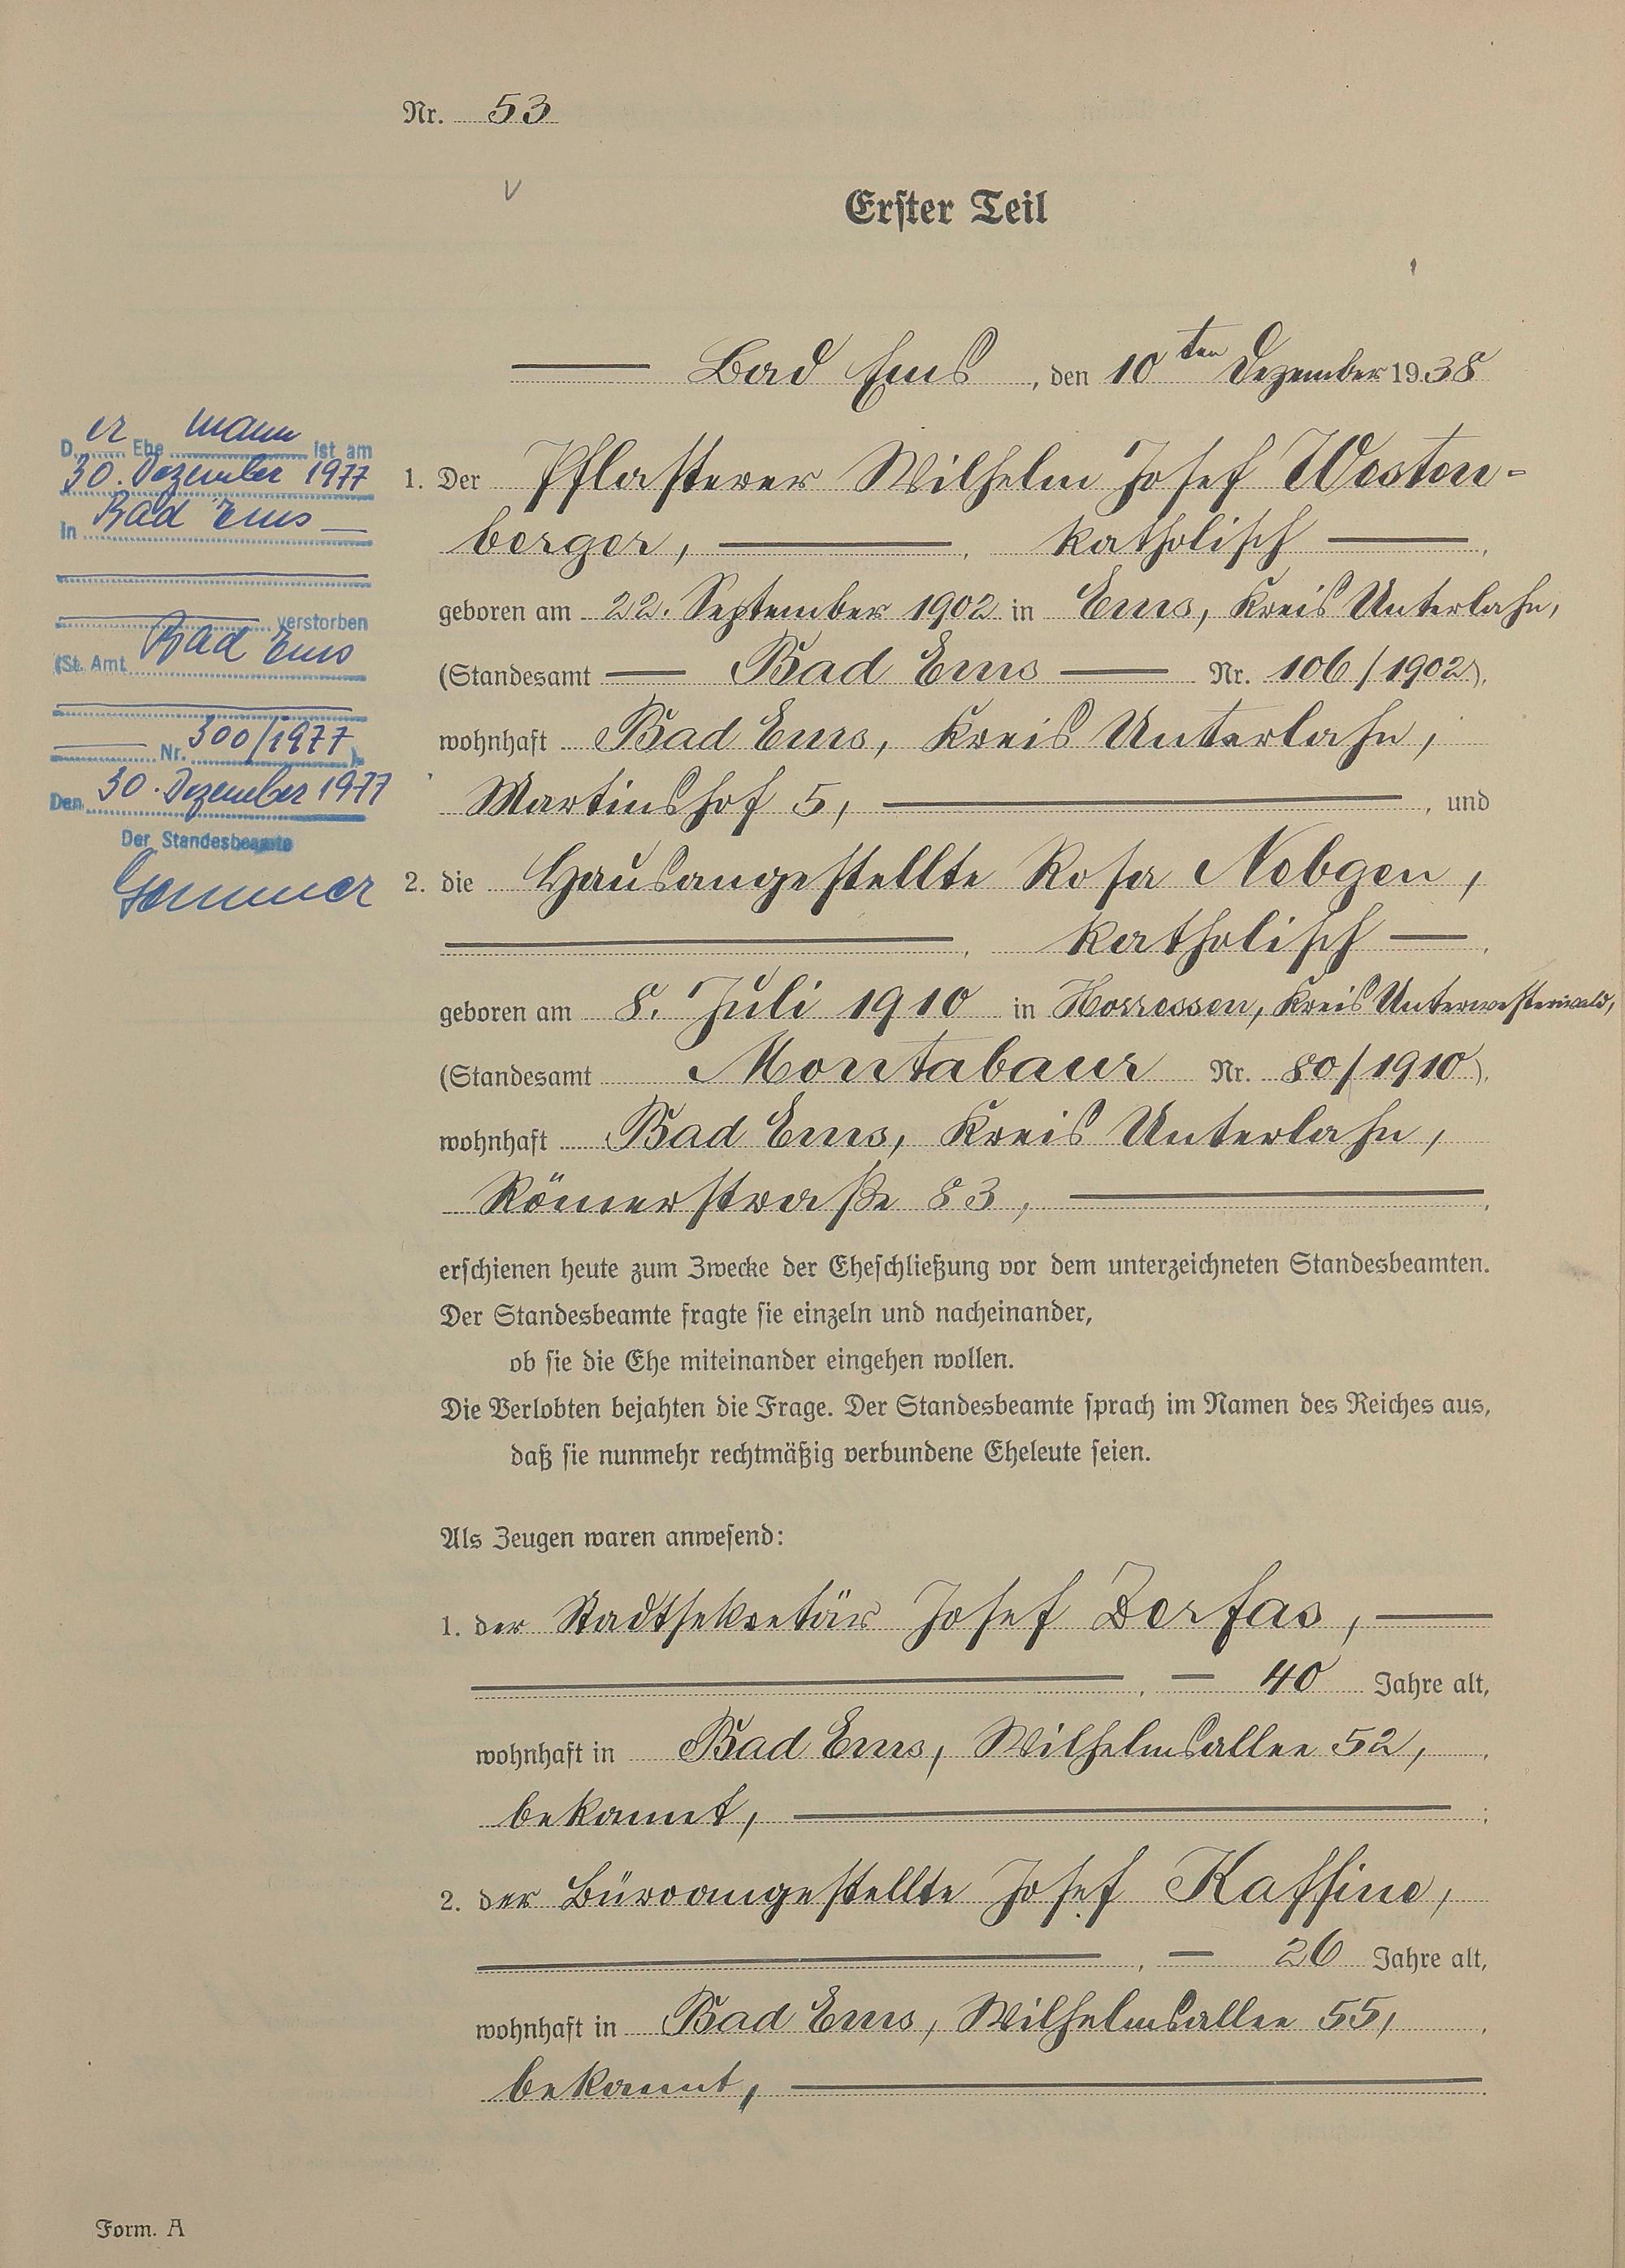 Nr. 53
Erster Teil
Bad Ems, den 10ten Dezember 1938
1. Der Pflasterer Wilhelm Josef Westen-
berger, katholisch,
geboren am 22. September 1902 in Ems, Kreis Unterlahn,
(Standesamt Bad Ems Nr. 106/1902),
wohnhaft Bad Ems, Kreis Unterlahn,
Martinshof 5, und
2. die Hausangestellte Rosa Nebgen,
katholisch,
geboren am 8. Juli 1910 in Horressen, Kreis Unterwesterwald,
(Standesamt Montabaur Nr. 80/1910),
wohnhaft Bad Ems, Kreis Unterlahn,
Römerstraße 83,
erschienen heute zum Zwecke der Eheschließung vor dem unterzeichneten Standesbeamten.
Der Standesbeamte fragte sie einzeln und nacheinander,
ob sie die Ehe miteinander eingehen wollen.
Die Verlobten bejahten die Frage. Der Standesbeamte sprach im Namen des Reiches aus,
daß sie nunmehr rechtmäßig verbundene Eheleute seien.
Als Zeugen waren anwesend:
1. der Stadtsekretär Josef Derfas,
40 Jahre alt,
wohnhaft in Bad Ems, Wilhelmsallee 52,
bekannt,
2. der Büroangestellte Josef Kaffine,
26 Jahre alt,
wohnhaft in Bad Ems, Wilhelmsallee 55,
bekannt,
Der Ehemann ist am
30. Dezember 1977
in Bad Ems
verstorben
(St. Amt Bad Ems
Nr. 300/1977).
Den 30. Dezember 1977
Der Standesbeamte
Form. A